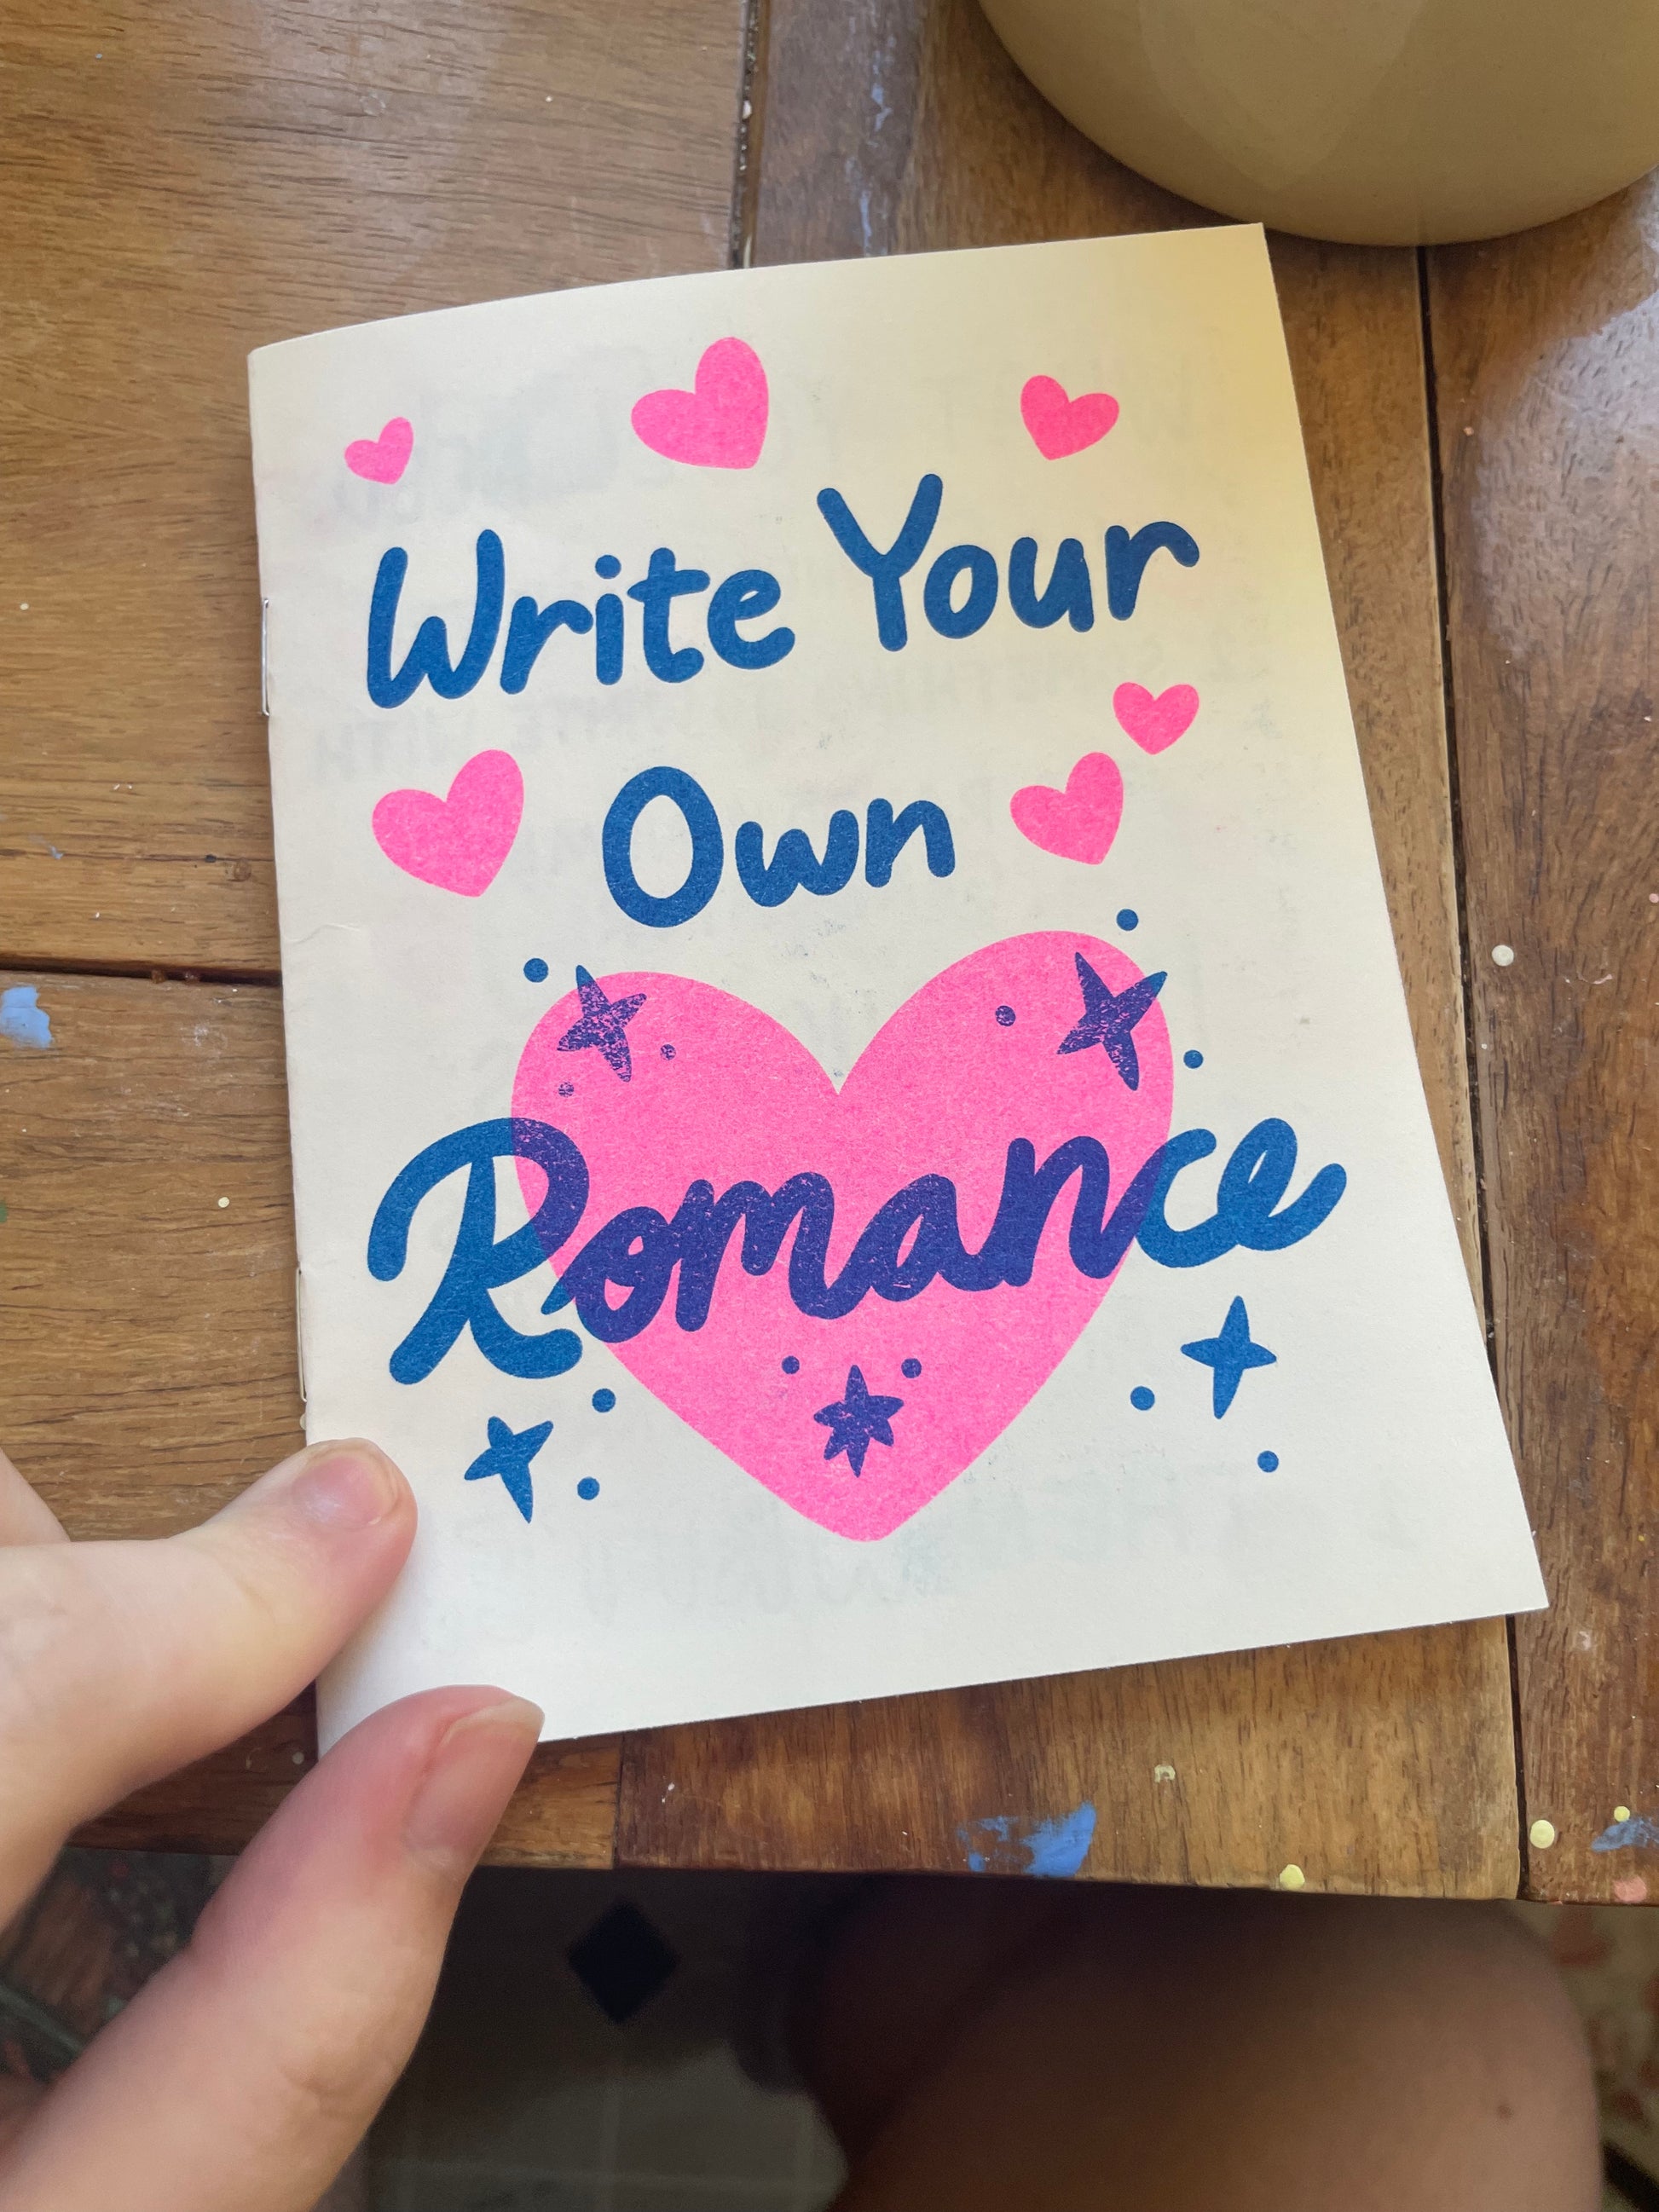 Write Your
Own
Romance